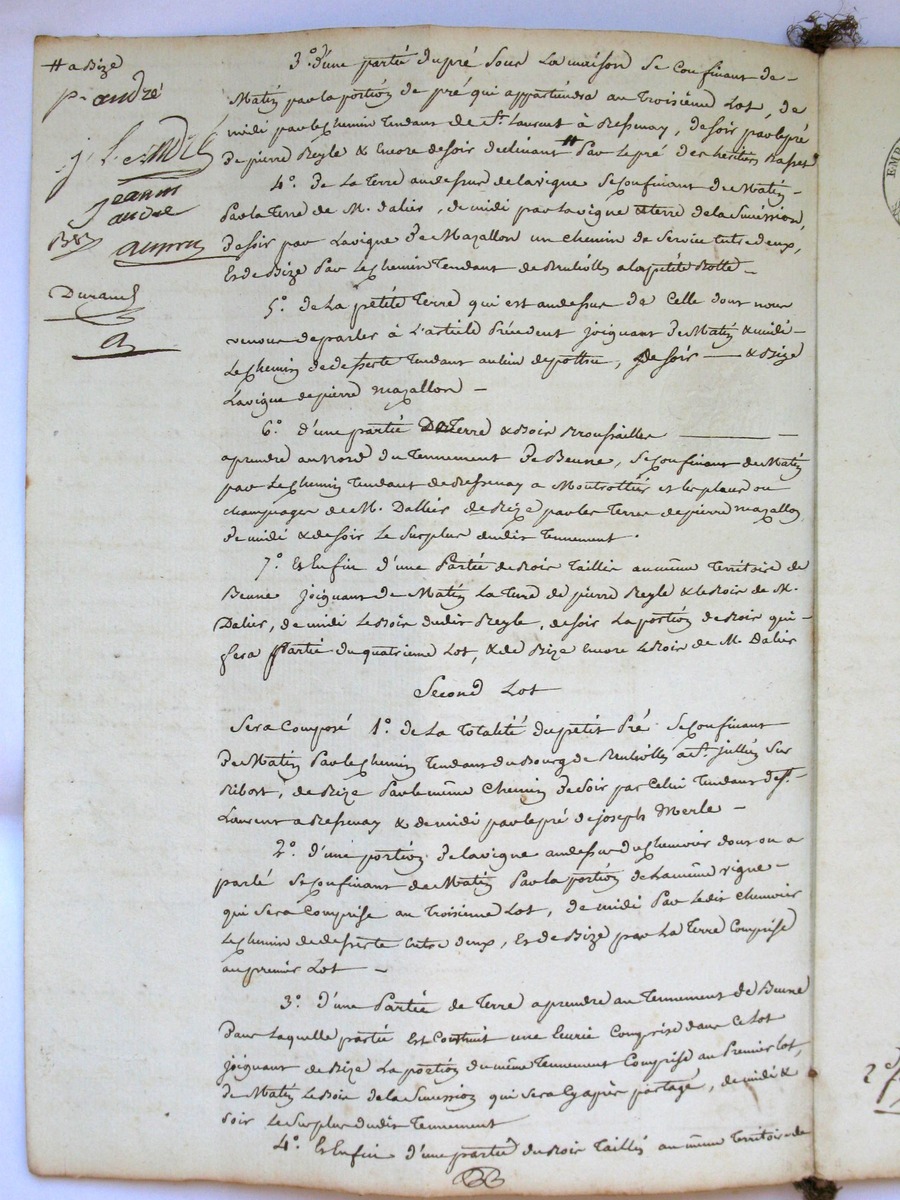 # a Bize
p. andré
Jeanne
andré
Durand
3.º d'une partie du pré sous La maison se confinant de -
Matin par la portion de pré qui appartiendra au Troisieme Lot, de
midi par le chemin Tendant de St. Laurent à Ressuay, de soir par le pré
de pierre Reyle & encore de soir declinant # Par le pré des heritiers Basset
4.º De La Terre au dessus de la vigne se confinant de Matin -
Par la Terre de M. dalier, de midi par la vigne & terre de la Sucession,
de soir par La vigne de Mazallon un chemin de service entre deux,
Et de Bize Par Le chemin Tendant de a la petite Rotte -
5.º de La petite Terre qui est au dessus de Celle dont nous
venons de parler à L'article Précedent joignant de Matin & midi -
Le chemin de desserte Tendant au lieu de , de soir — & Bize
La vigne de pierre Mazallon -
6.º d'une partie De Terre & Bois Broussailles —— -
a prendre au Nord du Tennement de Beune, se confinant de Matin
par Le chemin Tendant de Ressuay a Montrottier et les places ou
champages de M. Dallier de Bize par les Terres de pierre Mazallon
de midi & de soir Le Surplus dudit Tennement.
7.º Et Enfin d'une Partie de Bois Taillis au même Territoire de
Beune joignant de Matin La Terre de pierre Reyle & le Bois de M.
Dalier, de midi Le Bois dudit Reyle, de soir La portion de Bois qui -
fera Partie du quatrieme Lot, & de Bize Encore Le Bois de M. Dalier
Second Lot
Sera Composé 1.º de La Totalité du petit Pré se confinant
de Matin Par le chemin Tendant du Bourg de a St. jullien sur
Bibost, de Bize Par le même chemin de soir par Celui Tendant de St. -
Laurent a Ressuay & de midi par le pré de joseph Merle -
2.º d'une portion de la vigne au dessus du chenevier dont on a
parlé se confinant de Matin Par la portion de la même vigne -
qui sera Comprise au Troisieme Lot, de midi Par Ledit chenevier
Le chemin de desserte entre deux, Et de Bize par La Terre Comprise
au premier Lot -
3.º d'une Partie de Terre a prendre au Tennement de Beune
dans Laquelle partie Est Construit une Ecurie Comprise dans Ce Lot
joignant de Bize La portion du même Tennement Comprise au Premier Lot,
de Matin Le Bois de la Sucession qui sera Cy après partagé, de midi &
soir Le Surplus dudit Tennement
4.º Et Enfin d'une partie du Bois Taillis au même Territoire de